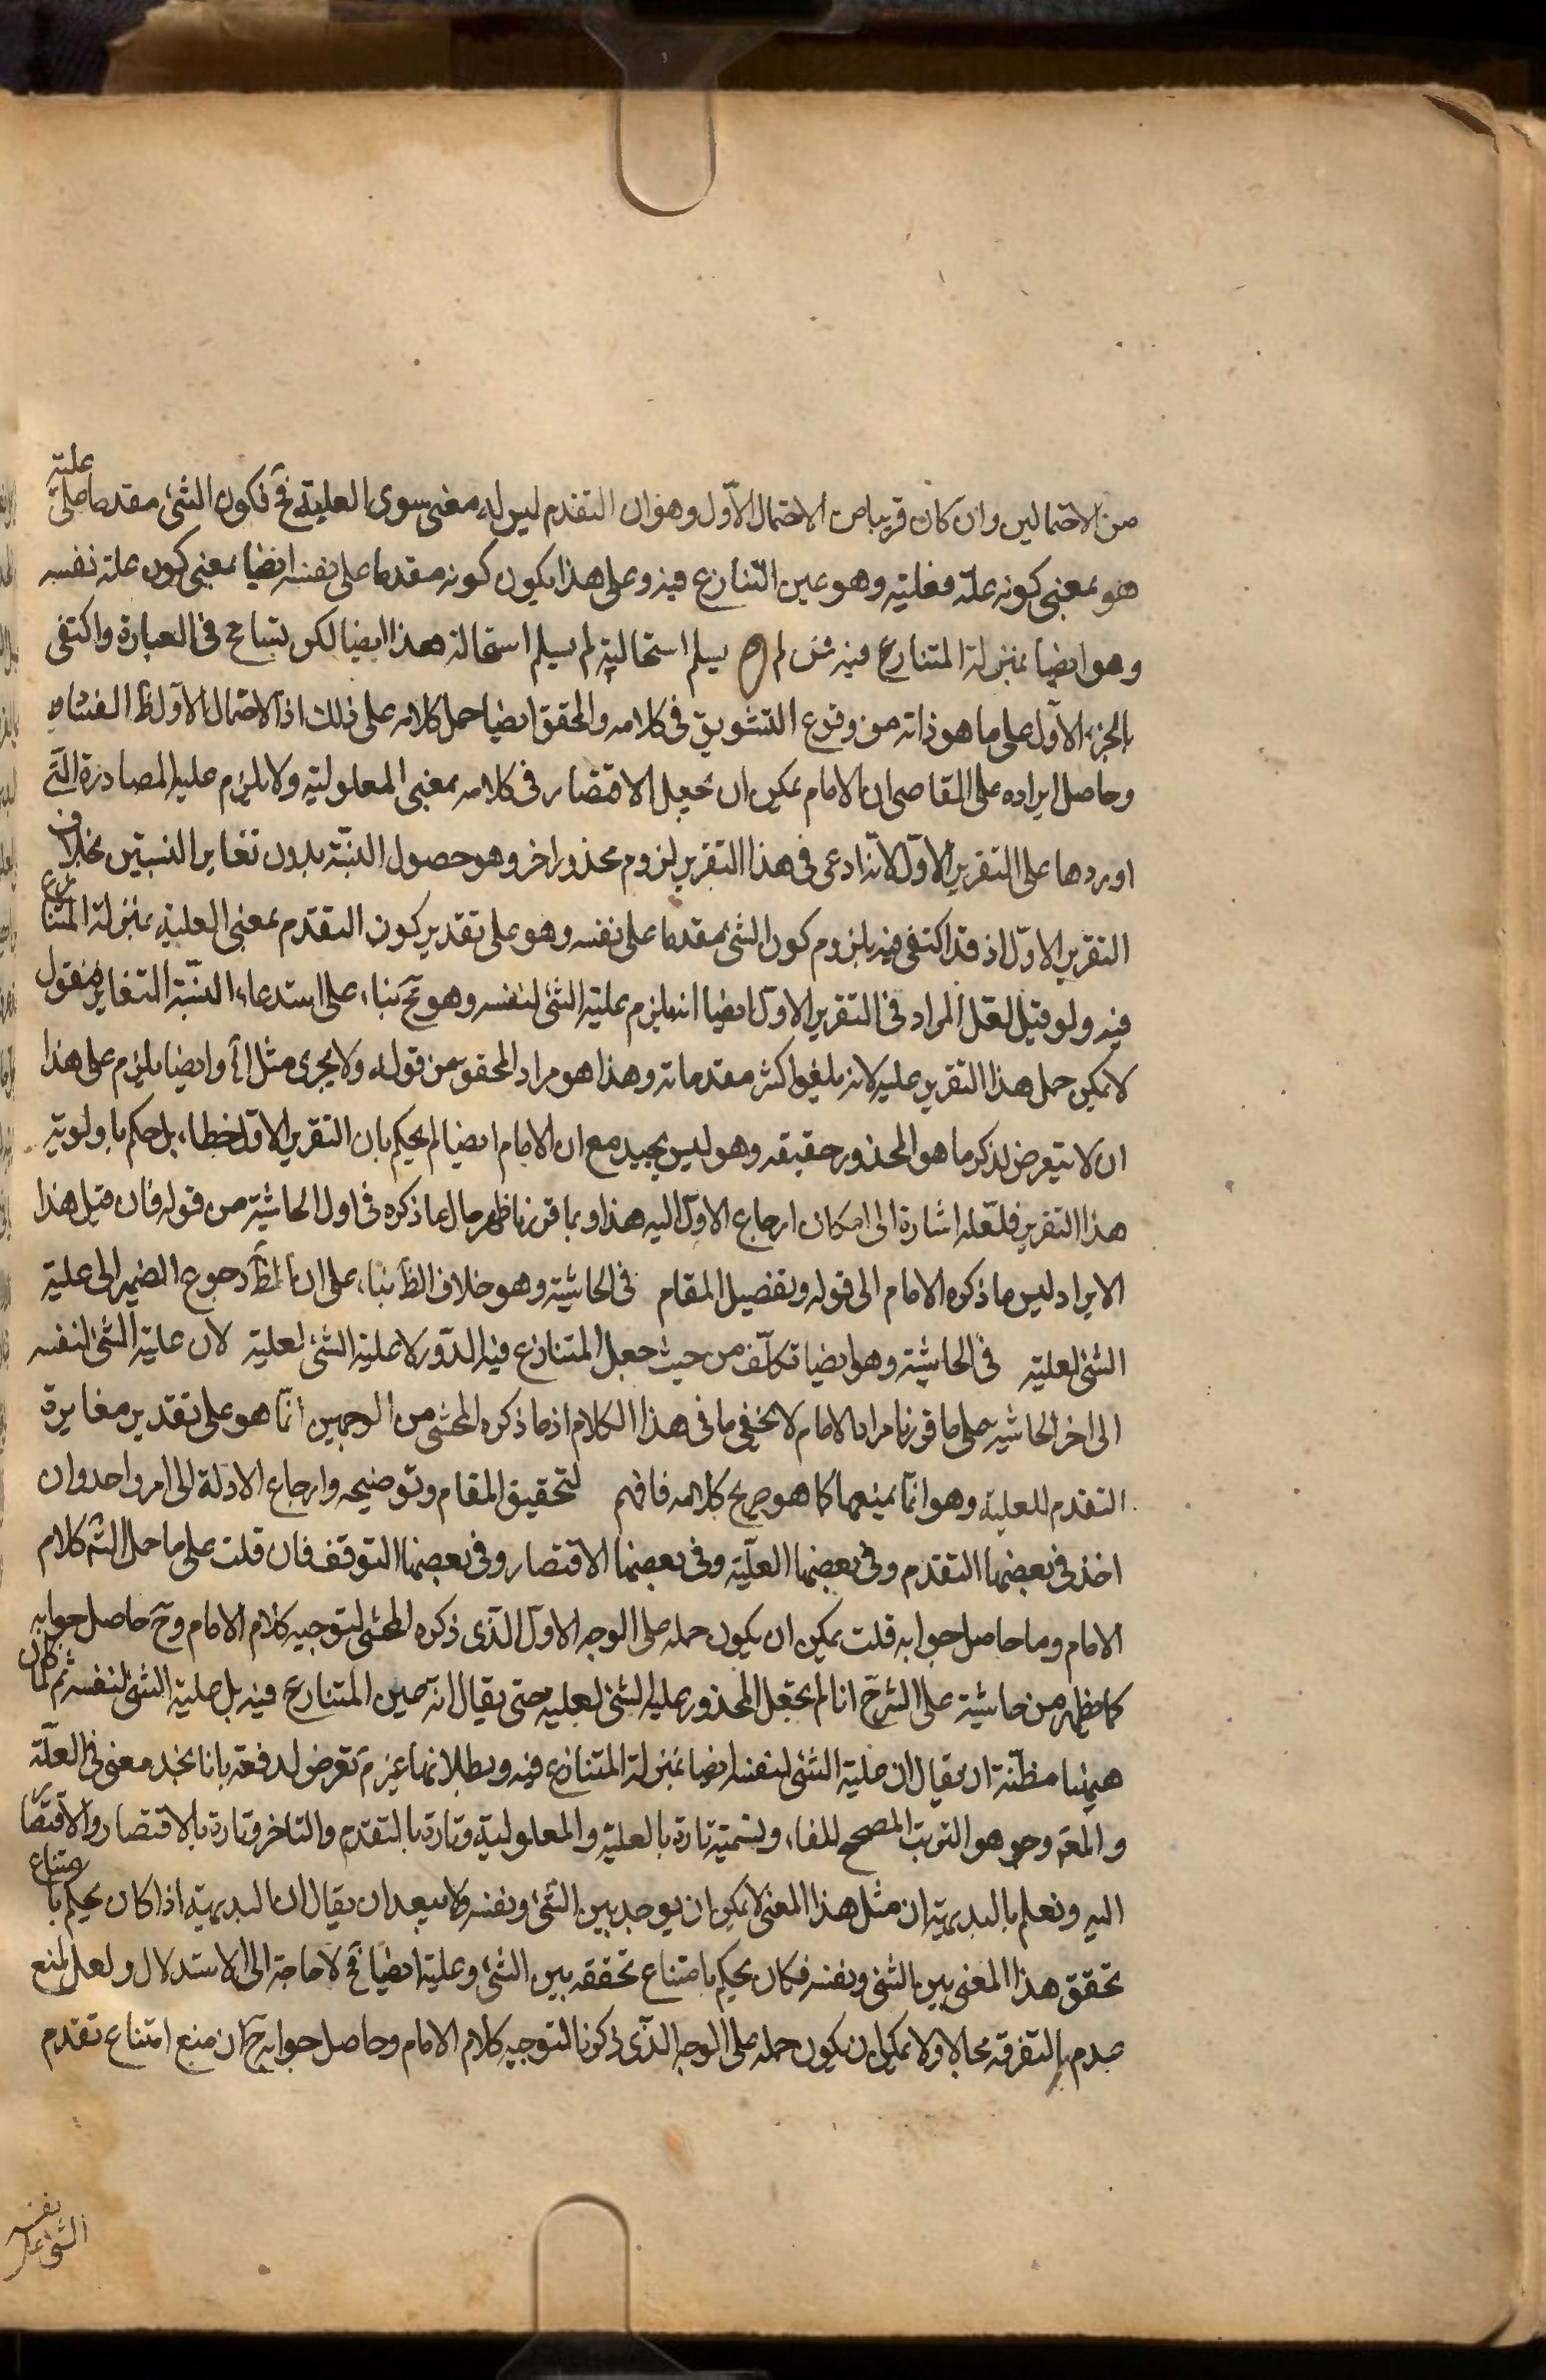 من الاحتمالين وان كان قريبا من الاحتمال الاول وهو ان التقدم ليس له معنى سوى العلية فح فكون الشئ مقدما على علته
هو بمعنى كونه علة فعليته وهو عين التنازع فيه وعلى هذا يكون كونه مقدما على نفسه ايضا بمعنى كون علة نفسه
وهو ايضا بمنزلة المتنازع فيه فمن لم يسلم استحالته لم يسلم استحالة هذا ايضا لكن تسامح فى العبارة واكتفى
بالجزء الاول على ما هو ذاته من وقوع التشويق فى كلامه والمحقق ايضا حمل كلامه على ذلك اذ الاحتمال الاول ظ الفساد
وحاصل ايراده على القاصى ان الامام يمكن ان يجعل الاقتضار فى كلامه بمعنى المعلولية ولا يلزم عليه المصادرة التى
اوردها على التقرير الاول لانه ادعى فى هذا التقرير لزوم محذور اخر وهو حصول النسبة بدون تغاير النسبتين بخلاف
التقرير الاول اذ قد اكتفى فيه بلزوم كون الشئ مقدما على نفسه وهو على تقدير كون التقدم بمعنى العلية بمنزلة المتنازع
فيه ولو قيل لعل المراد فى التقرير الاول ايضا انه يلزم علية الشئ لنفسه وهو مح بناء على استدعاء النسبة التغاير فنقول
لا يمكن حمل هذا التقرير عليه لانه يلغوا كثر مقدماته وهذا هو مراد المحقق من قوله ولا يجرى مثل الخ وايضا يلزم على هذا
ان لا يتعرض لذكر ما هو المحذور حقيقه وهو ليس بجيد مع ان الامام ايضا لم يحكم بان التقرير الاول خطاء بل حكم باولوية
هذا التقرير فلعله اشارة الى امكان ارجاع الاول اليه هذا وبما قررنا ظهر حال ما ذكره فى اول الحاشية من قوله فان قيل هذا
الايراد ليس ما ذكره الامام الى قوله وتفصيل المقام فى الحاشية وهو خلاف الظ بناء على ان الظ رجوع الضمير الى علية
الشئ لعليته فى الحاشية وهو ايضا تكلف من حيث جعل المتنازع فيه الدور لا علية الشئ لعليته لان علية الشئ لنفسه
الى اخر الحاشيه على ما قررنا مراد الامام لا يخفى ما فى هذا الكلام اذ ما ذكره المحشى من الوجهين انما هو على تقدير مغايرة
التقدم للعلية وهو انما يمنعها كما هو صريح كلامه فافهم لتحقيق المقام وتوضيحه وارجاع الادلة الى امر واحد وان
اخذ فى بعضها التقدم وفى بعضها العلية وفى بعضها الاقتصار وفى بعضها التوقف فان قلت على ما حمل الش كلام
الامام وما حاصل جوابه قلت يمكن ان يكون حمله على الوجه الاول الذى ذكره المحشى لتوجيه كلام الامام وح حاصل جوابه
كما يظهر من حاشية على الشرح انا لم نجعل المحذور علية الشئ لعليته حتى يقال انه عين المتنازع فيه بل علية الشئ لنفسه ثم لما كان
هيهنا مظنة ان يقال ان علية الشئ لنفسه ايضا بمنزلة المتنازع فيه وبطلانها غير م تعرض لدفعه بانا نجد معنى فى العلة
والمعه وهو هو الترتب المصحح للفاء ونسميته تارة بالعلية والمعلولية وتارة بالتقدم والتاخر وتارة بالاقتصار والافتقار
اليه ونعلم بالبديهية ان مثل هذا المعنى لا يمكن ان يوجد بين الشئ ونفسه ولا يبعد ان يقال ان البديهية اذا كان يحكم بامتناع
تحقق هذا المعنى بين الشئ ونفسه فكان يحكم بامتناع تحققه بين الشئ وعليته ايضا فح لا حاجة الى الاستدلال ولعل لمنع
عدم التفرقه مجالا ولا يمكن ان يكون حمله على الوجه الذى ذكرنا لتوجيه كلام الامام وحاصل جوابه ح ان منع امتناع تقدم
الشئ على نفسه